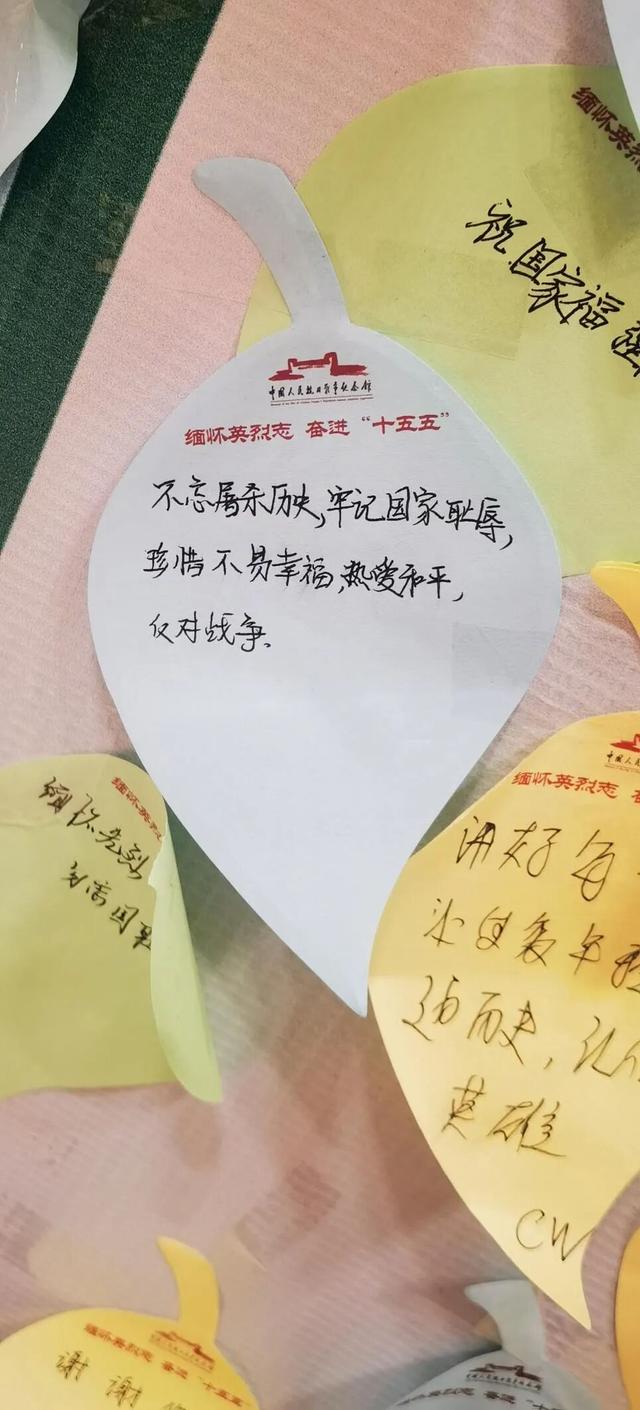 缅怀英烈
祝国家福强
中国人民抗日战争纪念馆
缅怀英烈志 奋进“十五五”
不忘屠杀历史,牢记国家耻辱,
珍惜不易幸福,热爱和平,
仅对战争.
缅怀英烈
缅怀先烈
中国人民
缅怀英烈志 奋
历史,
英雄
CW
缅怀英烈志 奋进“十五五”
谢谢
缅怀英烈志 奋进“十五五”